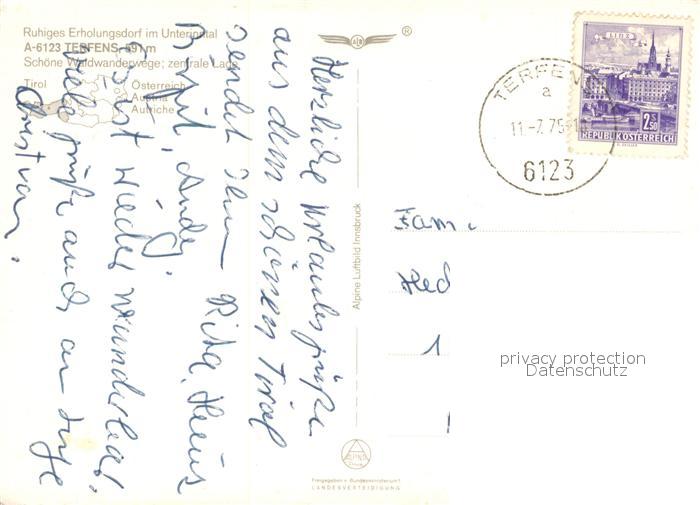 Ruhiges Erholungsdorf im Unterinntal
A-6123 TERFENS, 591 m
Schöne Waldwanderwege; zentrale Lage
Tirol
Österreich
Austria
Autriche
®
Herzliche Urlaubsgrüße
aus dem schönen Tirol
sendet Ihnen Rita, Heins
Birgit, Andy.
Es ist wieder wunderbar.
Viele Grüße auch an
Christian.
Alpine Luftbild Innsbruck
ALPINE
Freigegeben v. Bundesministerium f.
LANDESVERTEIDIGUNG
TERFENS
a
11.-7.75-
6123
LINZ
2.50
REPUBLIK ÖSTERREICH
Fam.
Hed
1
privacy protection
Datenschutz